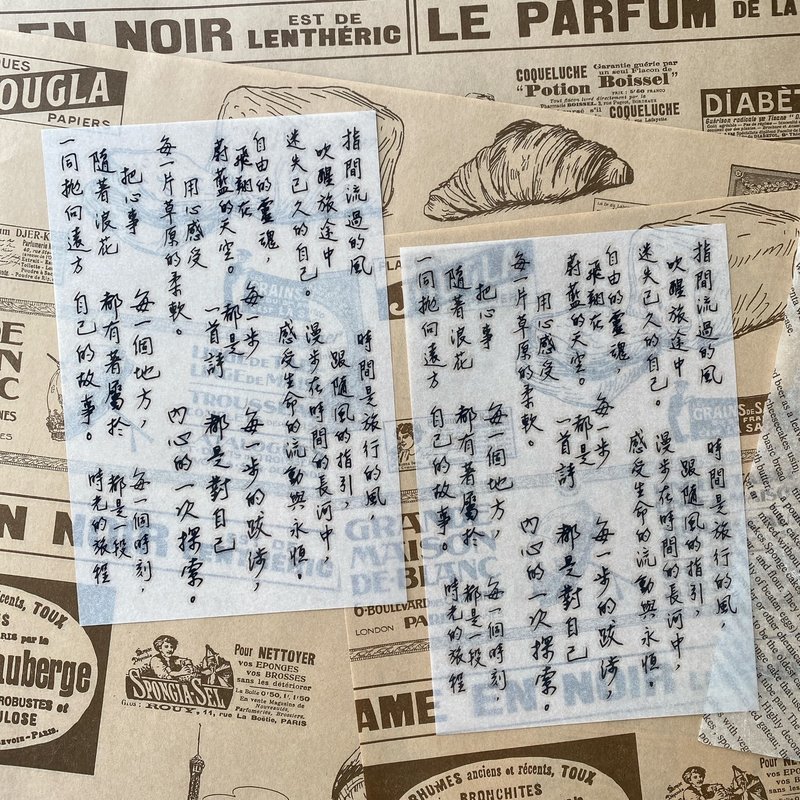 EN NOIR
EST DE
LENTHÉRIC
LE PARFUM
DE LA
OUGLA
PAPIERS
COQUELUCHE
"Potion Boissel"
Garantie guérie par
un seul Flacon de
COQUELUCHE
DIABÈT
指間流過的風
吹醒旅途中
迷失已久的自己。
自由的靈魂，
飛翔在
蔚藍的天空。
用心感受
每一片草原的柔軟。
把心事
隨著浪花
一同拋向遠方
時間是旅行的風，
跟隨風的指引，
漫步在時間的長河中，
感受生命的流動與永恆。
每一步
都是
一首詩
每一步的跋涉，
都是對自己
內心的一次探索。
每一個地方，
都有著屬於
自己的故事。
每一個時刻，
都是一段
時光的旅程
指間流過的風
吹醒旅途中
迷失已久的自己。
自由的靈魂，
飛翔在
蔚藍的天空。
用心感受
每一片草原的柔軟。
把心事
隨著浪花
一同拋向遠方
時間是旅行的風，
跟隨風的指引，
漫步在時間的長河中，
感受生命的流動與永恆。
每一步
都是
一首詩
每一步的跋涉，
都是對自己
內心的一次探索。
每一個地方，
都有著屬於
自己的故事。
每一個時刻，
都是一段
時光的旅程
GRANDE
MAISON
DE BLANC
6-BOULEVARD
LONDON
écents, TOUX
auberge
ROBUSTES et
SPONGIA-SEL
Pour NETTOYER
vos EPONGES
vos BROSSES
sans les détériorer
ROUY, 11, rue La Boëtie, PARIS
AME EN NOIR
RHUMES anciens et récents, TOUX
BRONCHITES
Pour NET
vos EPO